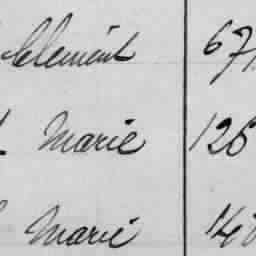 Clément 671
Marie 126
Marie 148